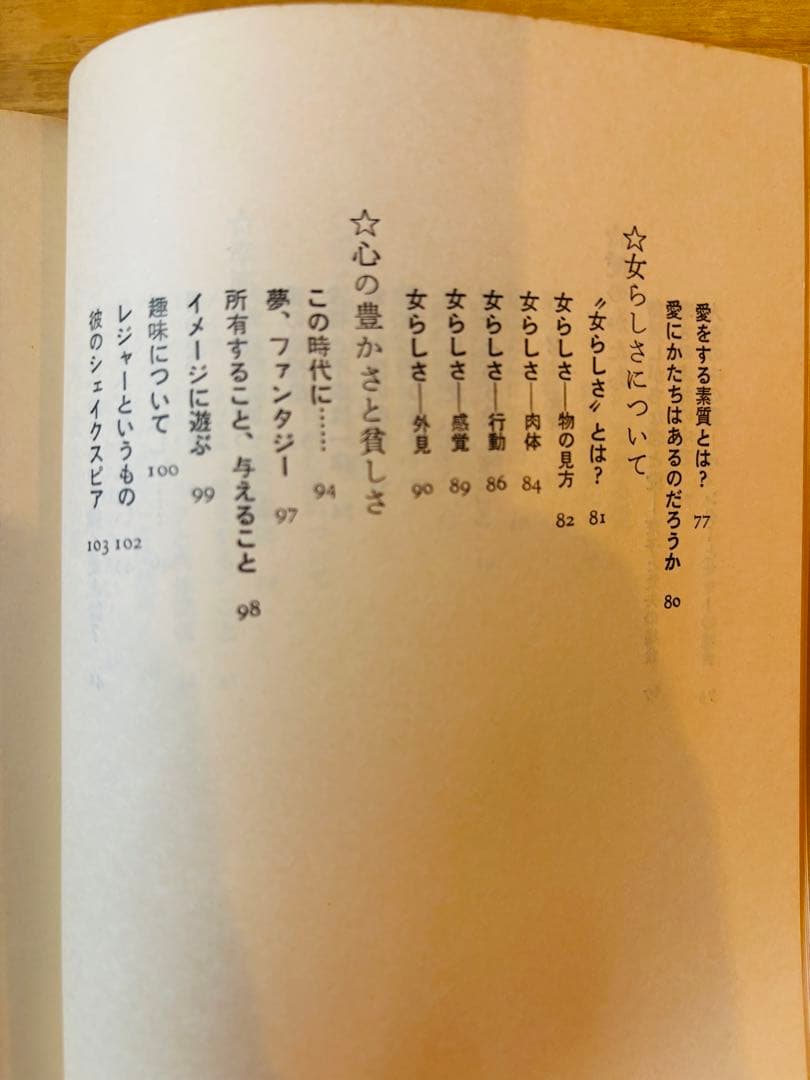 愛をする素質とは? 77
愛にかたちはあるのだろうか 80
☆女らしさについて
〝女らしさ〟とは? 81
女らしさ——物の見方 82
女らしさ——肉体 84
女らしさ——行動 86
女らしさ——感覚 89
女らしさ——外見 90
☆心の豊かさと貧しさ
この時代に…… 94
夢、ファンタジー 97
所有すること、与えること 98
イメージに遊ぶ 99
趣味について 100
レジャーというもの 102
彼のシェイクスピア 103